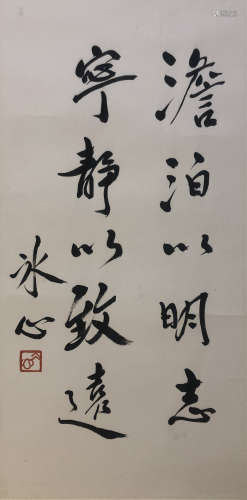 澹泊以明志
宁静以致遠
冰心